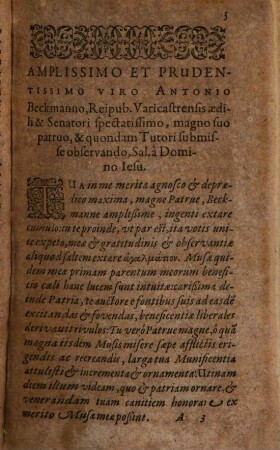 5
AMPLISSIMO ET PRUDEN-
TISSIMO VIRO ANTONIO
Beckmanno, Reipub. Varicastrensis ædi-
li & Senatori spectatissimo, magno suo
patruo, & quondam Tutori submis-
se observando, Sal. à Domi-
no Iesu.
TUA in me merita agnosco & depræ-
dico maxima, magne Patrue, Beck-
manne amplissime, ingenti extare
cumulo: in te proinde, ut par est, ita votis uni-
cè expeto, meæ & gratitudinis & observantiæ
aliquod saltem extare
dem meæ primam parentum meorum benefi-
cio cæli hanc lucem sunt intuitæ: carißima de-
inde Patria, te auctore e fontibus suis ad easdē
excitandas & fovendas, beneficentiæ liberales
derivavit rivulos: Tu verò Patrue magne, ô quā
magna iisdem Musis misere sæpe afflictis eri-
gendis ac recreandis, larga tua Munificentia
attulisti & incrementa & ornamenta! Utinam
diem illum videam, quo & patriam ornare, &
venerandam tuam canitiem honorare ex
merito Musæ meæ poßint. A 3